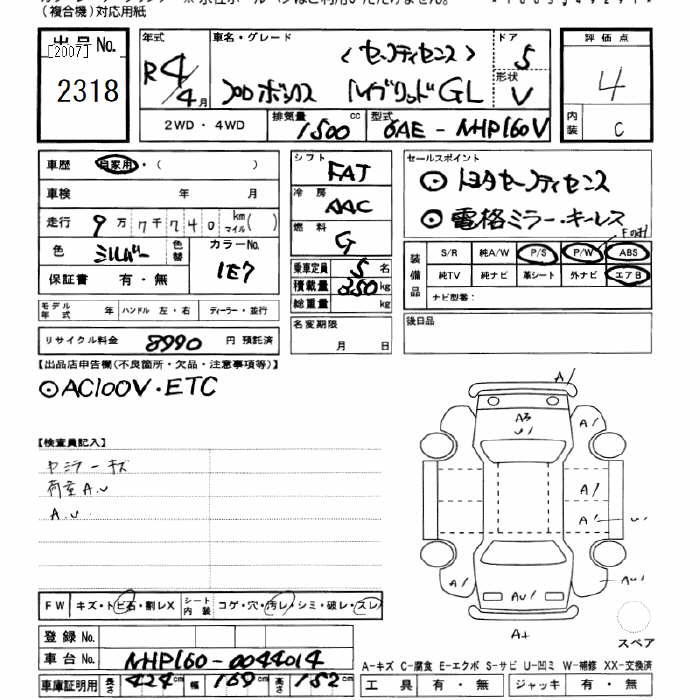 (複合機)対応用紙
出品No.
[2007]
2318
年式
R4/4月
車名・グレード
〈セーフティセンス〉
プロボックス ハイブリッドGL
ドア
5
形状
V
評価点
4
内装
C
2WD・4WD
排気量 1500 cc
型式 6AE-NHP160V
車歴 自家用・( )
車検 年 月
走行 9万7千740 km マイル( )
色 シルバー 色替
カラーNo. 1E7
保証書 有・無
モデル年式 年 ハンドル 左・右 ディーラー・並行
リサイクル料金 8990 円 預託済
シフト FAT
冷房 AAC
燃料 G
乗車定員 5 名
積載量 350 kg
総重量 kg
名変期限
月 日
セールスポイント
⊙トヨタセーフティセンス
⊙電格ミラー・キーレス
Fのみ
装備品
S/R 純A/W P/S P/W ABS
純TV 純ナビ 革シート 外ナビ エアB
ナビ型番:
後日品
【出品店申告欄(不良箇所・欠品・注意事項等)】
⊙AC100V・ETC
【検査員記入】
ヤミラーキズ
荷室A.U
A.U
FW キズ・トビ石・割レX シート内装 コゲ・穴・汚レ・シミ・破レ・スレ
登録No.
車台No. NHP160-0044014
車庫証明用 長さ 424 cm 幅 169 cm 高さ 152 cm
A1
A3
U1
A1
A1
A1
U
A1
AU1
AU1
A+
スペア
A-キズ C-腐食 E-エクボ S-サビ U-凹ミ W-補修 XX-交換済
工具 有・無 ジャッキ 有・無